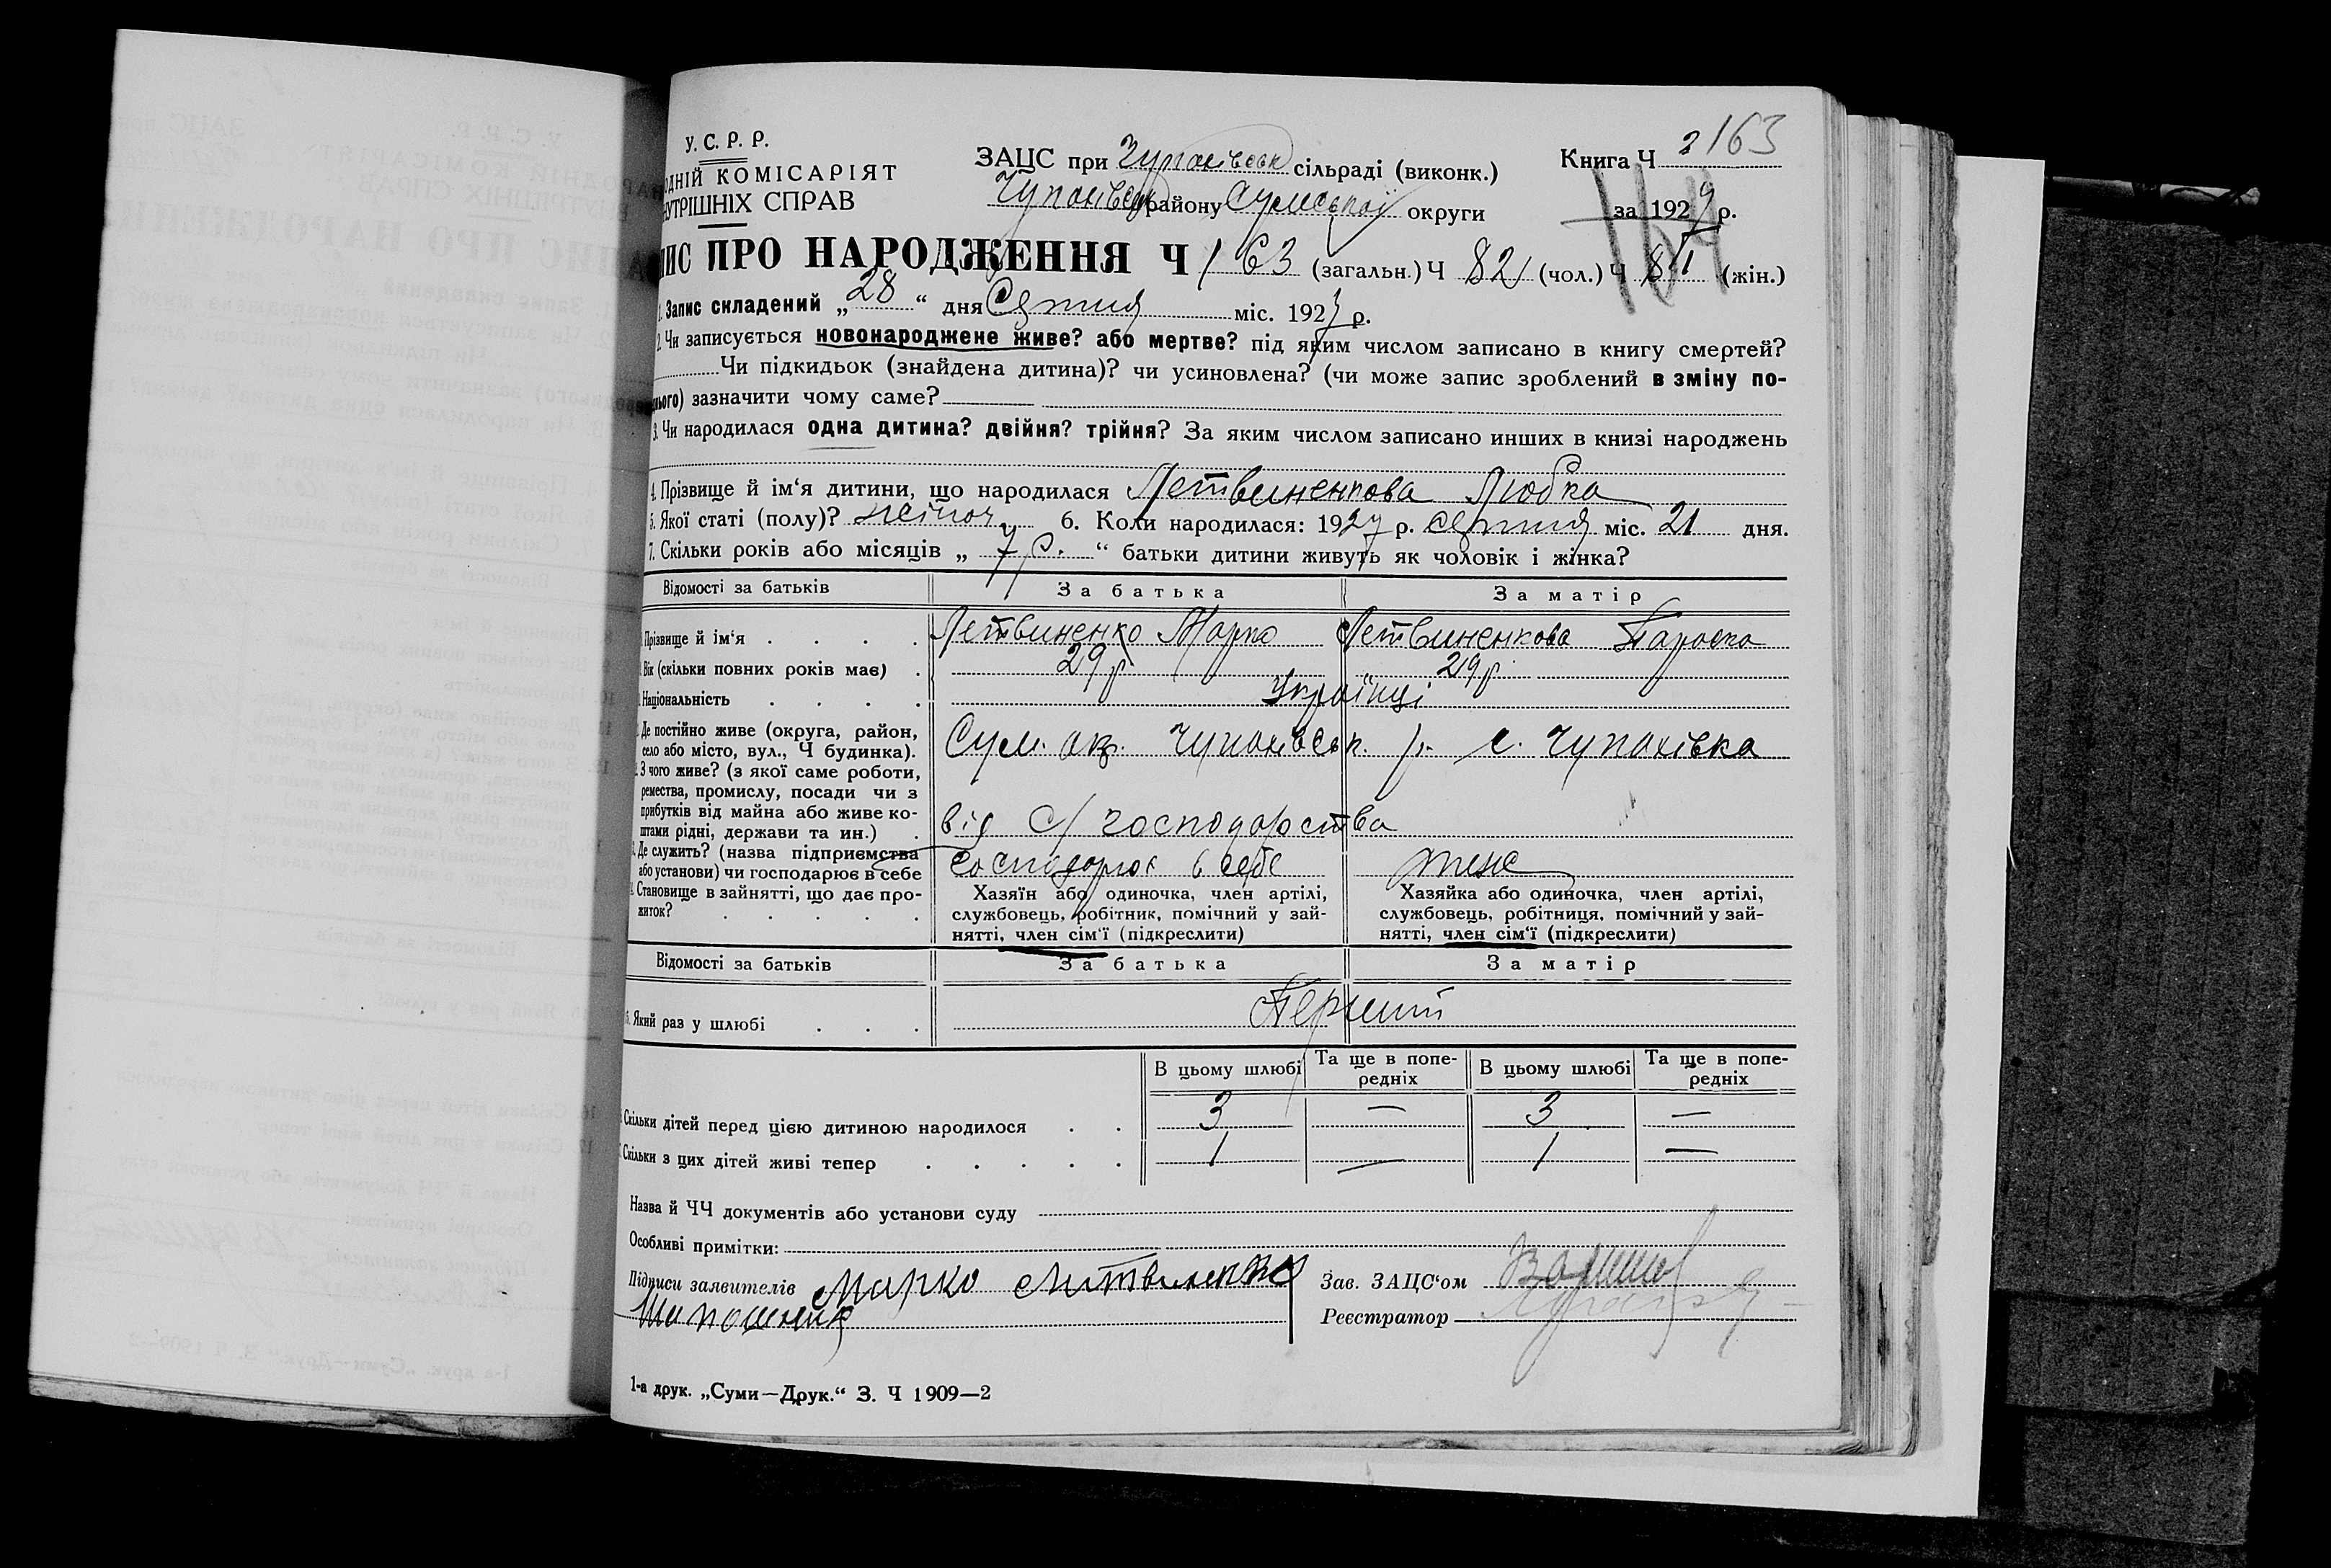 У. С. Р. Р.
ОДНІЙ КОМІСАРІЯТ
НУТРІШНІХ СПРАВ
ЗАЦС при Чупахівськ сільраді (виконк.)
Чупахівськ району Сумської округи
Книга Ч 2 163
за 1929 р.
164
ПИС ПРО НАРОДЖЕННЯ Ч 163 (загальн.) Ч 82 (чол.) Ч 81 (жін.)
1. Запис складений „28“ дня Септня міс. 192 р.
2. Чи записується новонароджене живе? або мертве? під яким числом записано в книгу смертей?
Чи підкидьок (знайдена дитина)? чи усиновлена? (чи може запис зроблений в зміну по-
нього) зазначити чому саме?
3. Чи народилася одна дитина? двійня? трійня? За яким числом записано инших в книзі народжень
4. Прізвище й ім‘я дитини, що народилася Летвиненкова Любка
5. Якої статі (полу)? жіноч. 6. Коли народилася: 192 р. септня міс. 21 дня.
7. Скільки років або місяців „ 7 р. “ батьки дитини живуть як чоловік і жінка?
Відомості за батьків За батька За матір
Прізвище й ім‘я Летвиненко Марко Летвиненкова Параска
Вік (скільки повних років має) 29 р 29 р.
Національність Українці
Де постійно живе (округа, район,
село або місто, вул., Ч будинка). Сум. окр. Чупахівськ. р. с. Чупахівка
З чого живе? (з якої саме роботи,
ремества, промислу, посади чи з
прибутків від майна або живе ко-
штами рідні, держави та ин.) від с/господарства
Де служить? (назва підприємства
або установи) чи господарює в себе господарює в себе жена
Становище в зайнятті, що дає про-
житок?
Хазяїн або одиночка, член артілі,
службовець, робітник, помічний у зай-
нятті, член сім‘ї (підкреслити)
Хазяйка або одиночка, член артілі,
службовець, робітниця, помічний у зай-
нятті, член сім‘ї (підкреслити)
Відомості за батьків За батька За матір
Який раз у шлюбі Перший
В цьому шлюбі Та ще в попе-
редніх В цьому шлюбі Та ще в попе-
редніх
Скільки дітей перед цією дитиною народилося 3 — 3 —
Скільки з цих дітей живі тепер 1 — 1 —
Назва й ЧЧ документів або установи суду
Особливі примітки:
Підписи заявителів Марко Литвиненко
Зав. ЗАЦС‘ом
Реєстратор
1-а друк. „Суми—Друк.“ З. Ч 1909—2